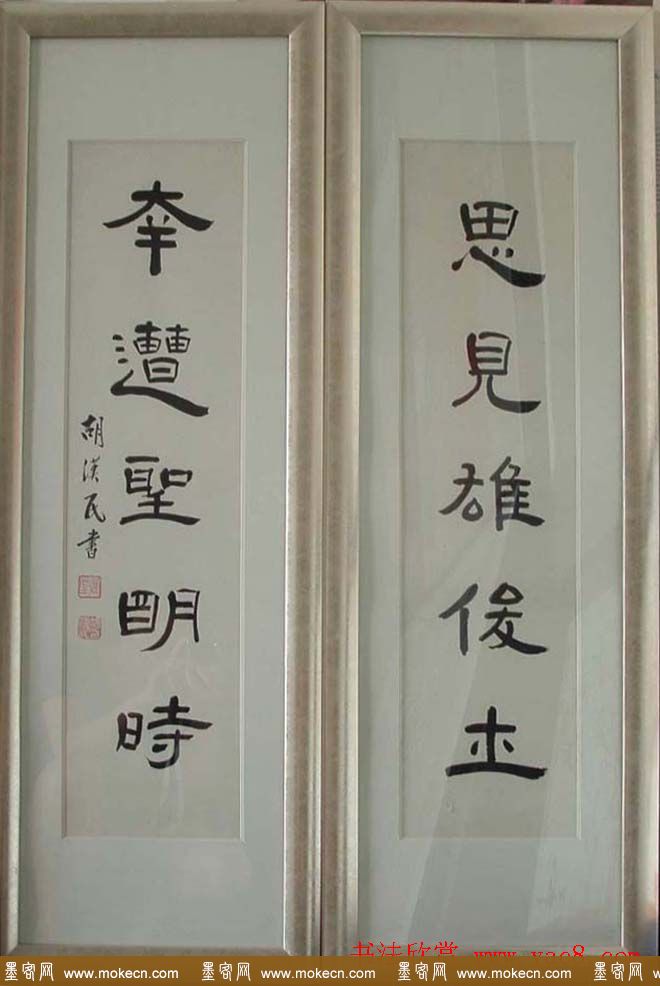 思見雄俊士
幸遭聖明時
胡漢民書
书法欣赏 www.yac8.com
墨客网 www.mokecn.com 墨客网 www.mokecn.com 墨客网 www.mokecn.com